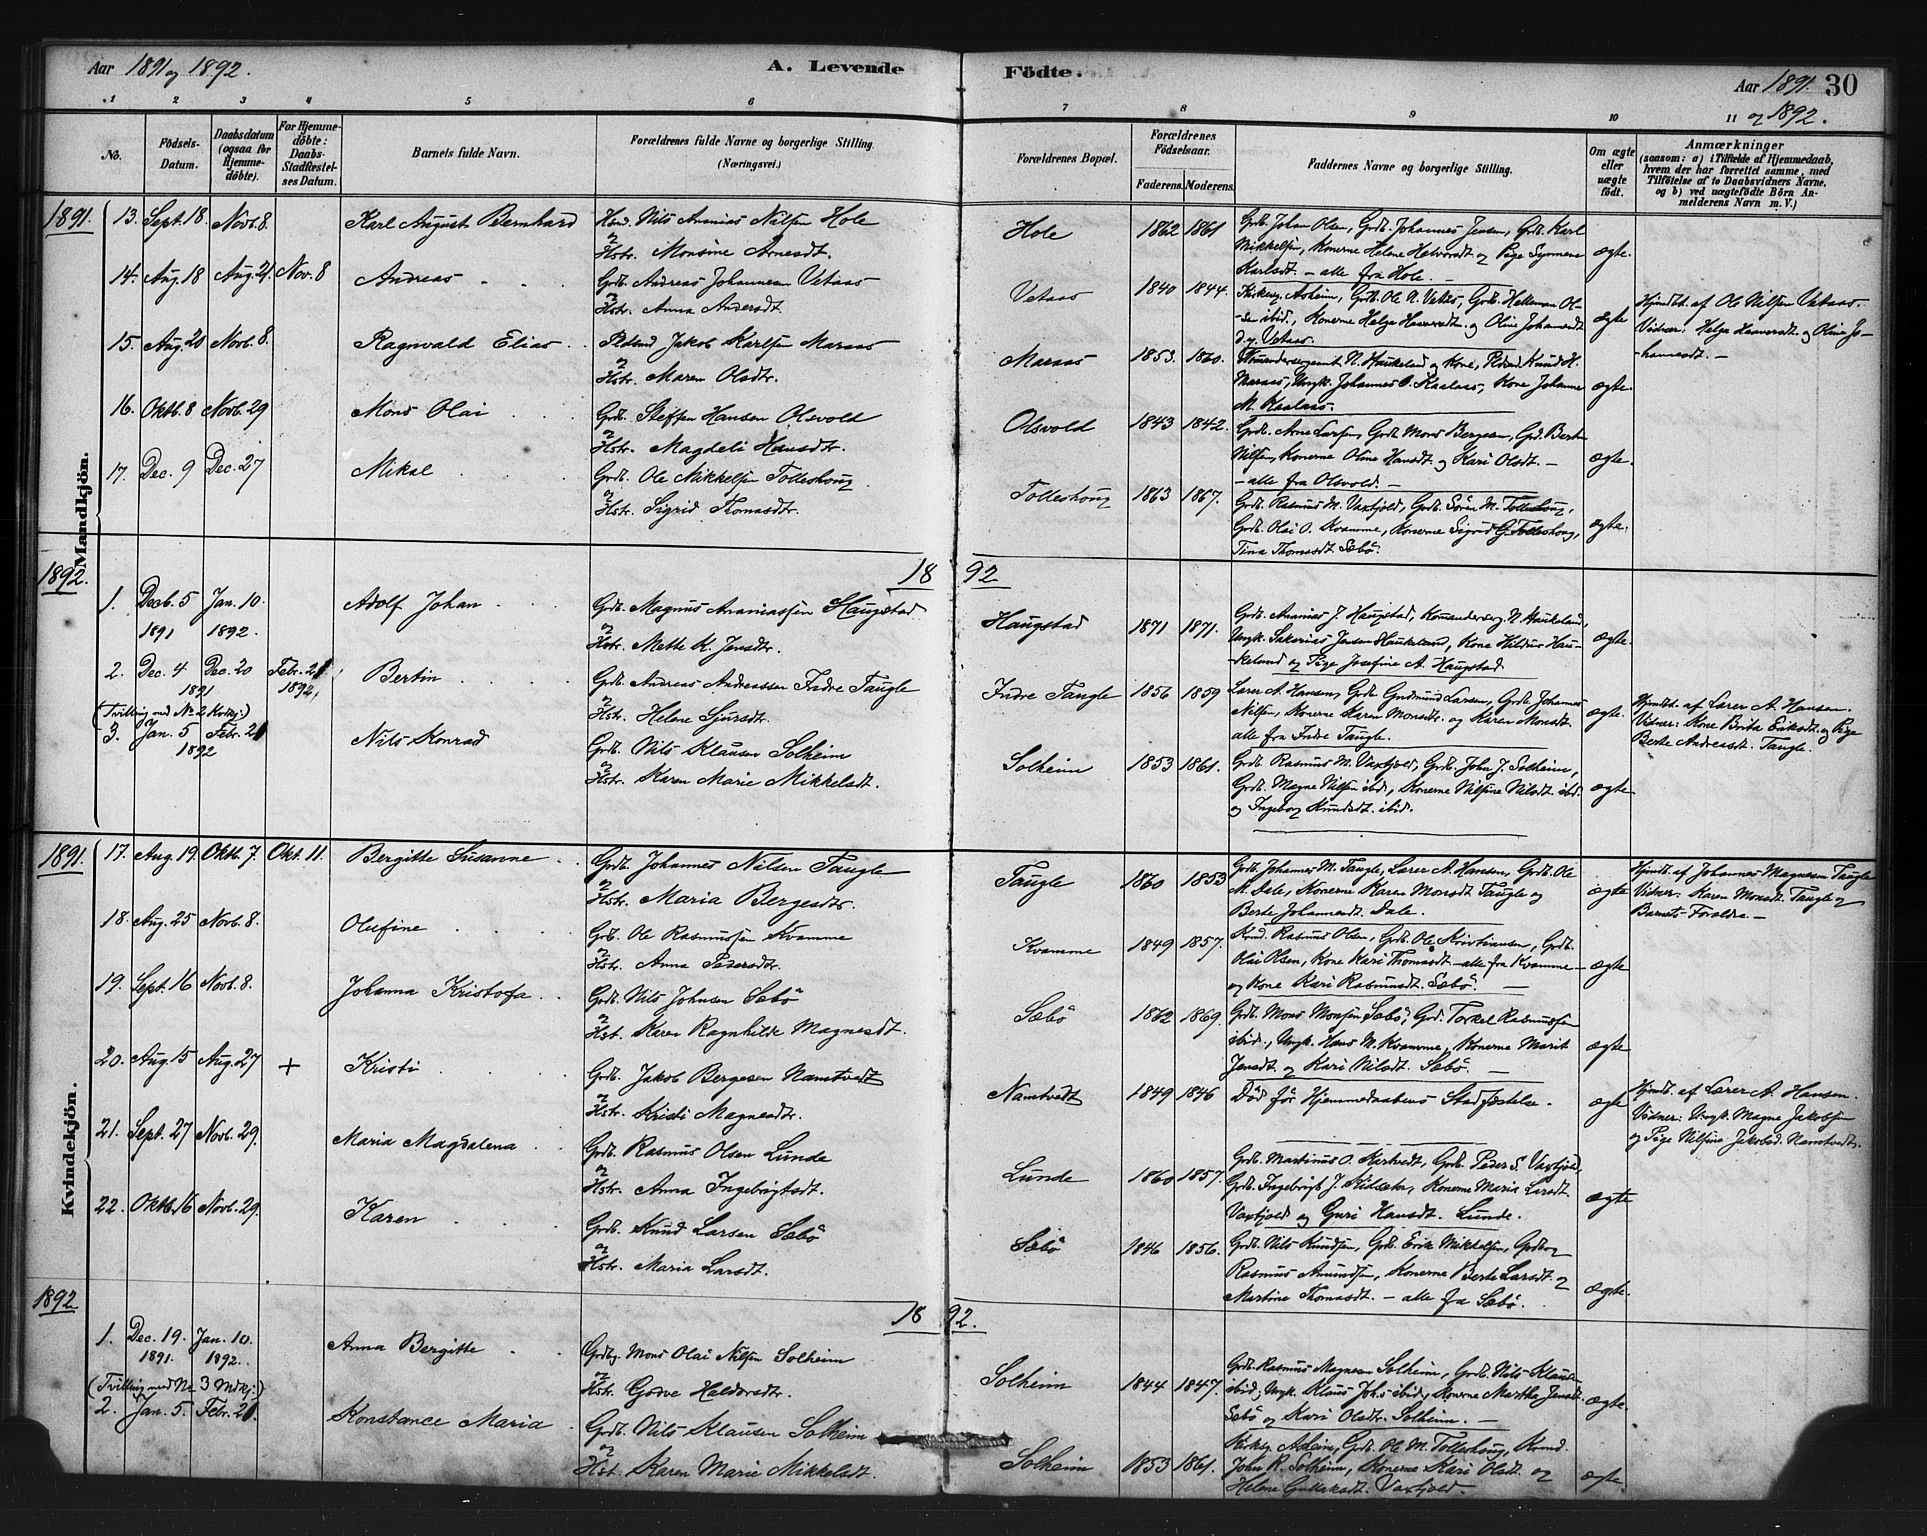 Aar 1891 og 1892. A. Levende Födte. Aar 1891 og 1892. 30
1 2 3 4 5 6 7 8 9 10 11
No. Födsels-Datum. Daabsdatum (ogsaa for Hjemmedöbte). For Hjemmedöbte: Daabs-Stadfæstelses Datum. Barnets fulde Navn. Forældrenes fulde Navne og borgerlige Stilling. (Næringsvei.) Forældrenes Bopæl. Forældrenes Födselsaar. Faderens. Moderens. Faddernes Navne og borgerlige Stilling. Om ægte eller uægte födt. Anmærkninger (saasom: a) i Tilfælde af Hjemmedaab, hvem der har forrettet samme, med Tilföielse af to Daabsvidners Navne, og b) ved uægtefödte Börn Anmelderens Navn m. V.)
Mandkjön.
1891.
13. Sept. 18. Novb. 8. Karl August Bernhard
Nils Ananias Nilsen Hole
og Hstr. Monsine Arnesdt.
Hole 1862 1861
Grdb. Johan Olsen, Grdb. Johannes Jensen, Grdb. Karl
Mikkelsen, Konerne Helene og Pige
Karlsdt. – alle fra Hole. – ægte.
14. Aug. 18 Aug. 21. Nov. 8 Andreas
Grdb. Andreas Johannesen Vetaas
og Hstr. Anna Andersdt.
Vetaas 1840 1844.
Kirkesg. Asheim, Grdb. Ole N. Vetaas, Grdb. Helleman Ol-
sen ibid., Konerne Helga og Oline Johannesdt
Vetaas. ægte
Hjmdt. af Ole Nilsen Vetaas.
Vidner: Helga og Oline Jo-
hannesdt. –
15. Aug. 20 Novb. 8. Ragnvald Elias
Jakob Karlsen Maraas
og Hstr. Maren Olsdtr.
Maraas 1853. 1860.
N. Haukeland og Kone, Knud H.
Maraas, Ungk. Johannes O. Kaalaas, Kone Johanne
M. Kaalaas. ægte.
16. Oktb. 8 Novb. 29 Mons Olai
Grdb. Steffen Hansen Olsvold
og Hstr. Magdeli Hansdtr.
Olsvold 1843 1842.
Grdb. Arne Larsen, Grdb. Mons Bergesen, Grd. Bertin
Nilsen, Konerne Oline Hansdt. og Kari Olsdt. –
– alle fra Olsvold. – ægte.
17. Dec. 9 Dec. 27 Mikal
Grdb. Ole Mikkelsen Tolleshoug
og Hstr. Sigrid Thomasdtr.
Tolleshoug 1863 1867.
Grdb. Rasmus M. Vaxfjold, Grdb. Sören M. Tolleshoug,
Grdb. Olai O. Kvamme, Konerne Sigrid G. Tolleshoug,
Tina Thomasdt. Sæbö. ægte.
1892. 18 92
1. Decb. 5 1891 Jan. 10. 1892. Adolf Johan
Grdb. Magnus Ananiassen Haugstad
og Hstr. Mette K. Jensdtr.
Haugstad 1871 1871.
Grdb. Ananias J. Haugstad, N. Haukeland,
Ungk. Sakarias Jensen Haukeland, Kone Hildur Hau-
keland og Pige Josefine A. Haugstad. ægte.
2. Dec. 4 Dec. 20 1891 Febr. 21 1892. Bertin
Grdb. Andreas Andreassen Indre Taugle
og Hstr. Helene Sjursdtr.
Indre Taugle 1856 1859
Lærer A. Hansen, Grdb. Gudmund Larsen, Grdb. Johannes
Nilsen, Konerne Karen Monsdtr. og Karen Monsdt.
alle fra Indre Taugle. ægte.
Hjmdt. af Lærer A. Hansen.
Vidner: Kone Brita Eriksdt. og Pige
Berte Andreasdt. Taugle.
(Tvilling med No 2 Kvkj.)
3. Jan. 5 Febr. 21 1892 Nils Konrad
Grdb. Nils Klausen Solheim
og Hstr. Karen Marie Mikkelsdt.
Solheim 1853 1861.
Grdb. Rasmus M. Vaxfjold, Grdb. John J. Solheim,
Grdb. Magne Nilsen ibid., Konerne Nilsine Nilsdt. ibid.
og Ingeborg Knudsdt. ibid. ægte
Kvindekjön.
1891.
17. Aug. 19. Oktb. 7. Okt. 11. Bergitte Susanne
Grdb. Johannes Nilsen Taugle
og Hstr. Maria Bergesdtr.
Taugle 1860 1853
Grdb. Johannes M. Taugle, Lærer A. Hansen, Grdb. Ole
M. Dale, Konerne Karen Monsdt. Taugle og
Berte Johannesdt. Dale. ægte
Hjmdt. af Johannes Magnesen Taugle
Vidner: Karen Monsdt. Taugle og
Barnets Forældre. –
18. Aug. 25 Novb. 8. Olufine
Grdb. Ole Rasmussen Kvamme
og Hstr. Anna Pedersdtr.
Kvamme 1849 1857.
Rasmus Olsen, Grdb. Ole Kristiansen, Grdb.
Olai Olsen, Kone Kari Thomasdt. – alle fra Kvamme –
og Kone Kari Rasmusdt. Sæbö. – ægte
19. Sept. 16 Novb. 8. Johanna Kristofa
Grdb. Nils Johnsen Sæbö
og Hst. Karen Ragnhilde Magnesdt.
Sæbö 1862 1869.
Grdb. Mons Monsen Sæbö, Grd. Torkel Rasmussen
ibid., Ungk. Hans M. Kvamme, Konerne Marit
Jensdt. og Kari Nilsdt. Sæbö. – ægte
20. Aug. 15 Aug. 27 + Kristi
Grdb. Jakob Bergesen Namtvedt
og Hstr. Kristi Magnesdtr.
Namtvedt 1849 1846
Död för Hjemmedaabens Stadfæstelse. ægte
Hjmdt. af Lærer A. Hansen.
Vidner: Ungk. Magne Jakobsen
og Pige Nilsine Jakobsd. Namtvedt.
21. Sept. 27 Novb. 29. Maria Magdalena
Grdb. Rasmus Olsen Lunde
og Hstr. Anna Ingebrigtsdt.
Lunde 1860 1857.
Grdb. Martinus O. Grdb. Peder S. Vaxfjold,
Grdb. Ingebrigt J. Konerne Maria Larsdt.
Vaxfjold og Guri Hansdt. Lunde. ægte
22. Oktb. 16 Novb. 29. Karen
Grdb. Knud Larsen Sæbö
og Hstr. Maria Larsdt.
Sæbö 1846 1856.
Grdb. Nils Knudsen, Grdb. Erik Mikkelsen,
Rasmus Amundsen, Konerne Berte Larsdt. og
Martine Thomasdt. – alle fra Sæbö. ægte.
1892 18 92.
1. Dec. 19. 1891. Jan. 10. 1892. Anna Bergitte
Mons Olai Nilsen Solheim
og Hstr. Gorve Haldorsdtr.
Solheim 1844 1847.
Grdb. Rasmus Magnesen Solheim, Grdb. Nils Klausen
ibid., Ungk. Klaus Johs. ibid., Konerne Martha Jensdt.
Sæbö og Kari Olsdtr. Solheim. – ægte.
(Tvilling med No 3 Mdkj.)
2. Jan. 5. Febr. 21. Konstance Maria
Grdb. Nils Klausen Solheim
og Hst. Karen Marie Mikkelsdt.
Solheim 1853 1861.
Kirksg. Asheim, Grdb. Ole M. Tolleshoug,
John R. Solheim, Konerne Kari Olsdt. og
Helene Vaxfjold. ægte